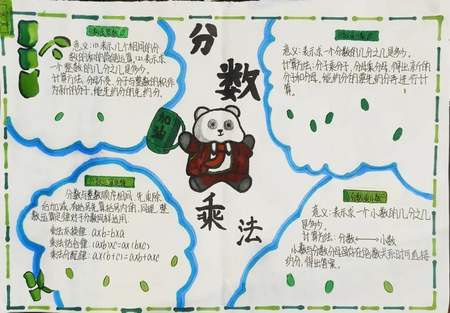 分
数
乘
法
加油
意义:(1)表示几个相同的分
数的和的简便运算,(2)表示求
一个整数的几分之几是多少。
计算方法:分母不变,分子与整数的积作
为新的分子,能先约分的先约分。
意义:表示求一个分数的几分之几是多少。
计算方法:分子乘分子,分母乘分母,得出新的分
子和分母,能约分的要先约分再进行计
算。
分数与整数顺序相同,先乘除
后加减,有括号先算括号内的,同理,整
数运算定律对于分数同样适用
乘法交换律: axb=bxa
乘法结合律: (axb)xc=ax(bxc)
乘法分配律: ax(b+c)=axb+axc
意义:表示求一个小数的几分之几
是多少。
计算方法:分数⟷小数
小数与分数分母间存在倍数关系时可直接
约分,得出答案。